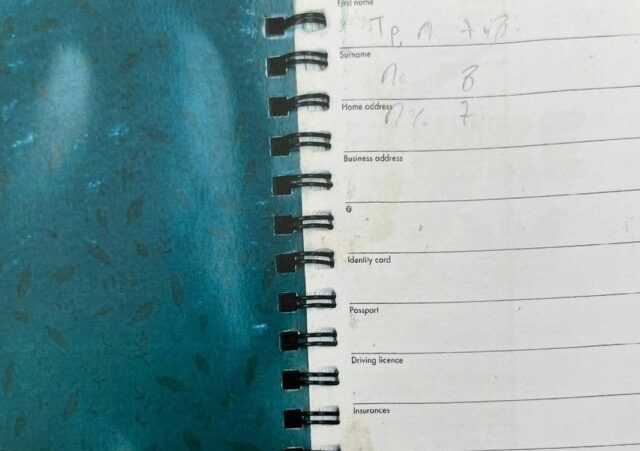 First name
Surname
8
Home address
7
Business address
@
Identity card
Passport
Driving licence
Insurances